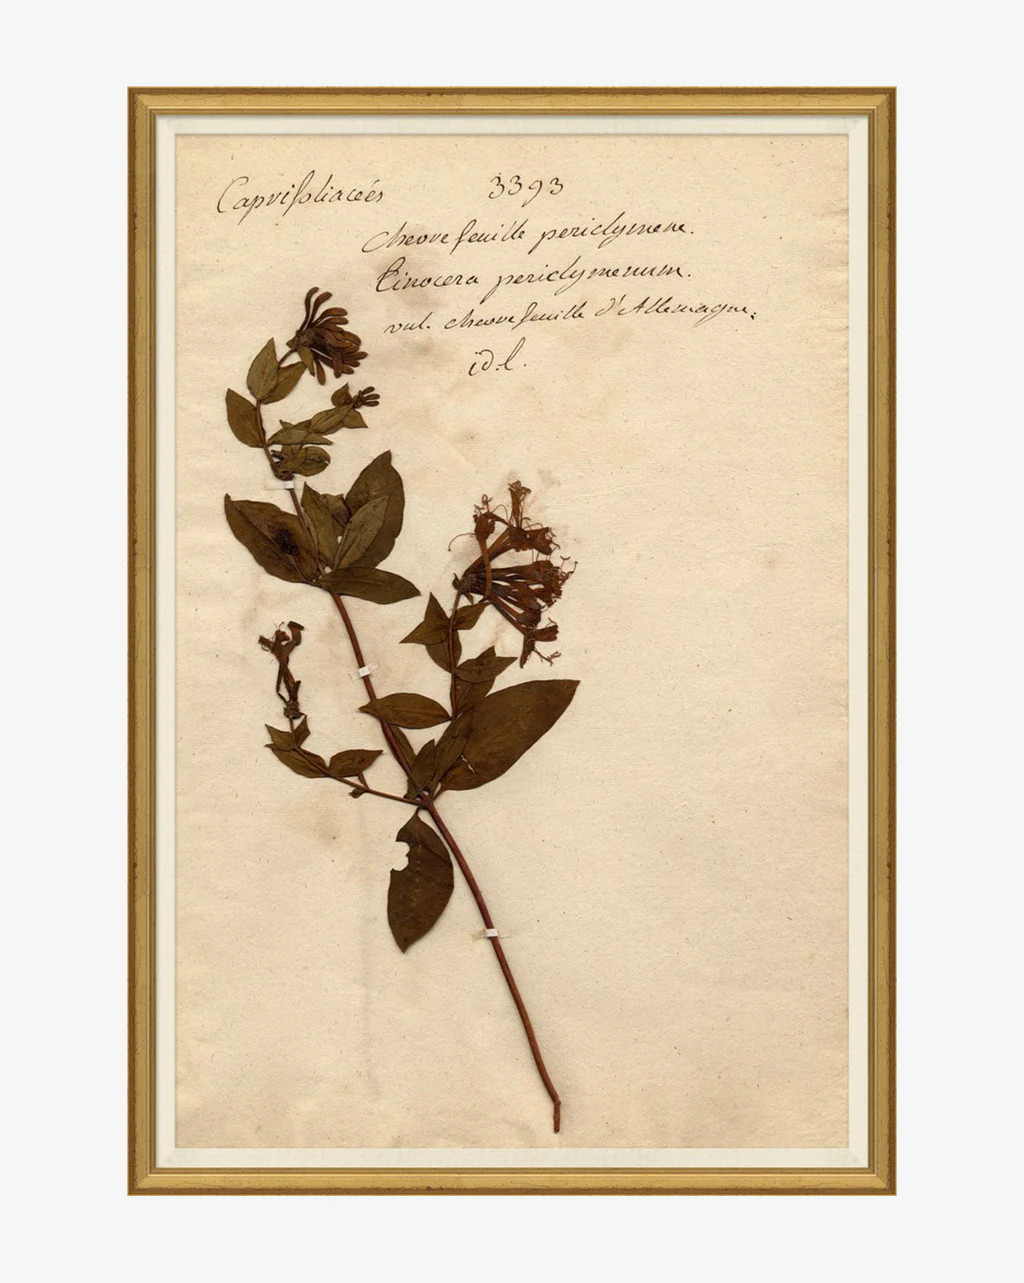 Caprifoliaceés 3393
chevre feuille periclymene.
Linocera periclymenum.
vul. chevre feuille d'Allemagne.
id. l.